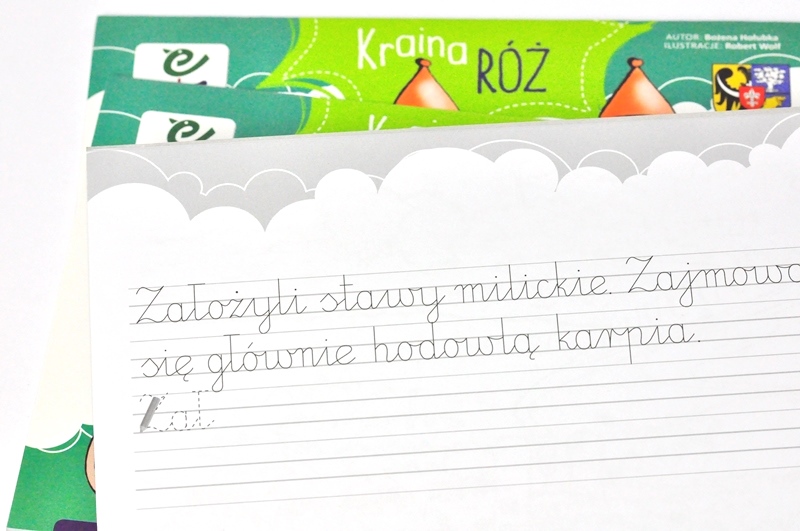 Kraina
RÓŻ
AUTOR: Bożena Hołubka
ILUSTRACJE: Robert Wolf
Założyli stawy milickie. Zajmowa
się głównie hodowlą karpia.
Zał